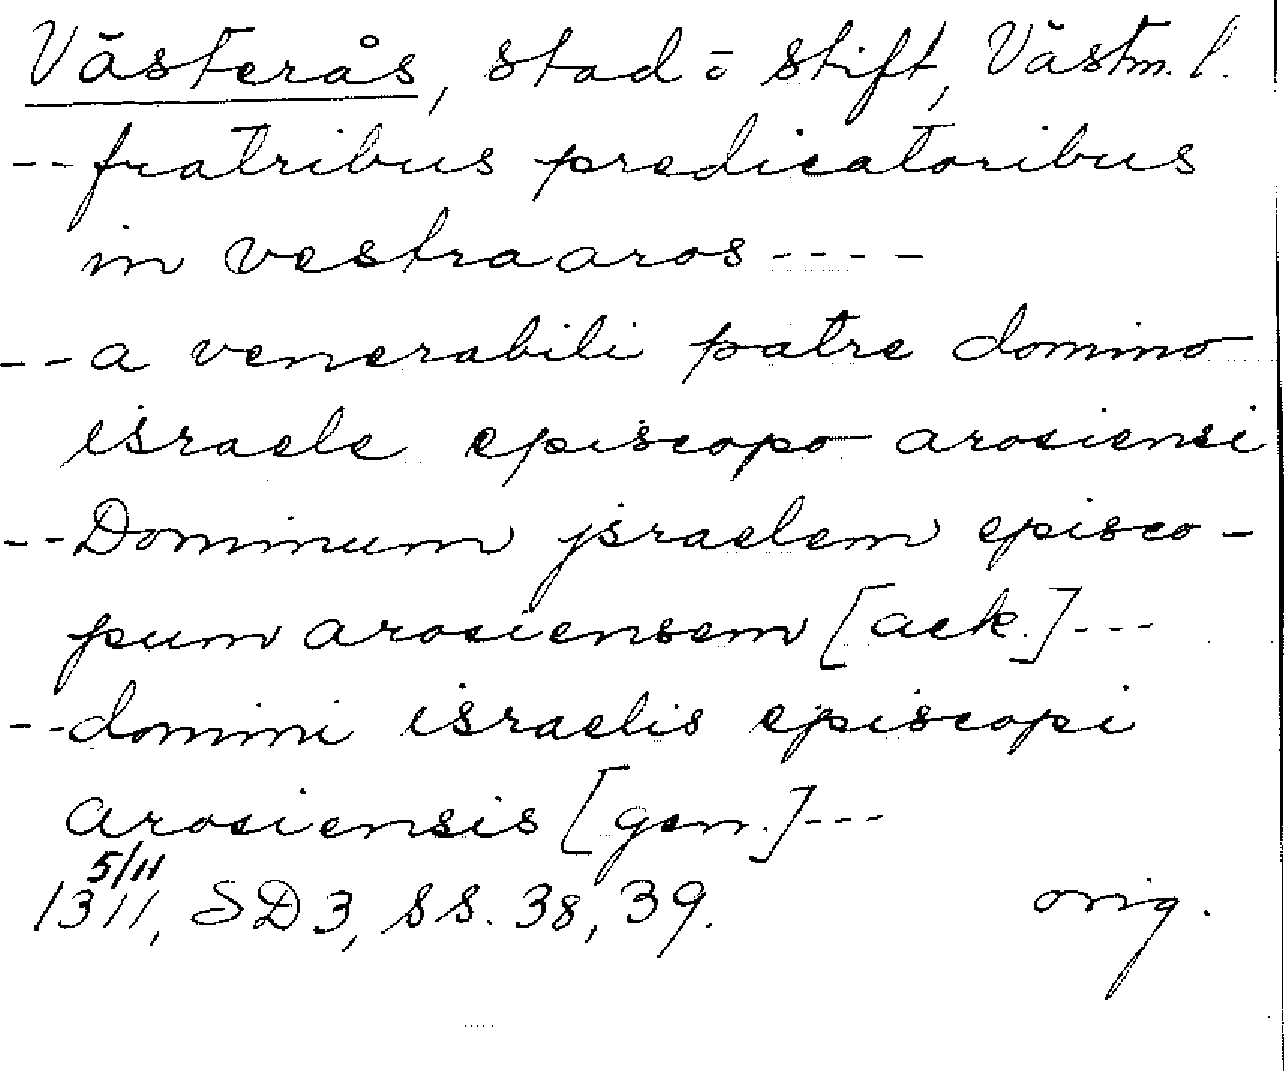 Västerås, stad o stift, Västm. l.
-- fratribus predicatoribus
in vestraaros ----
-- a venerabili patre domino
israele episcopo arosiensi
-- Dominum jsraelem episco-
pum arosiensem [ack.] ---
-- domini israelis episcopi
arosiensis [gen.] ---
5/11
1311, SD 3, ss. 38, 39. orig.